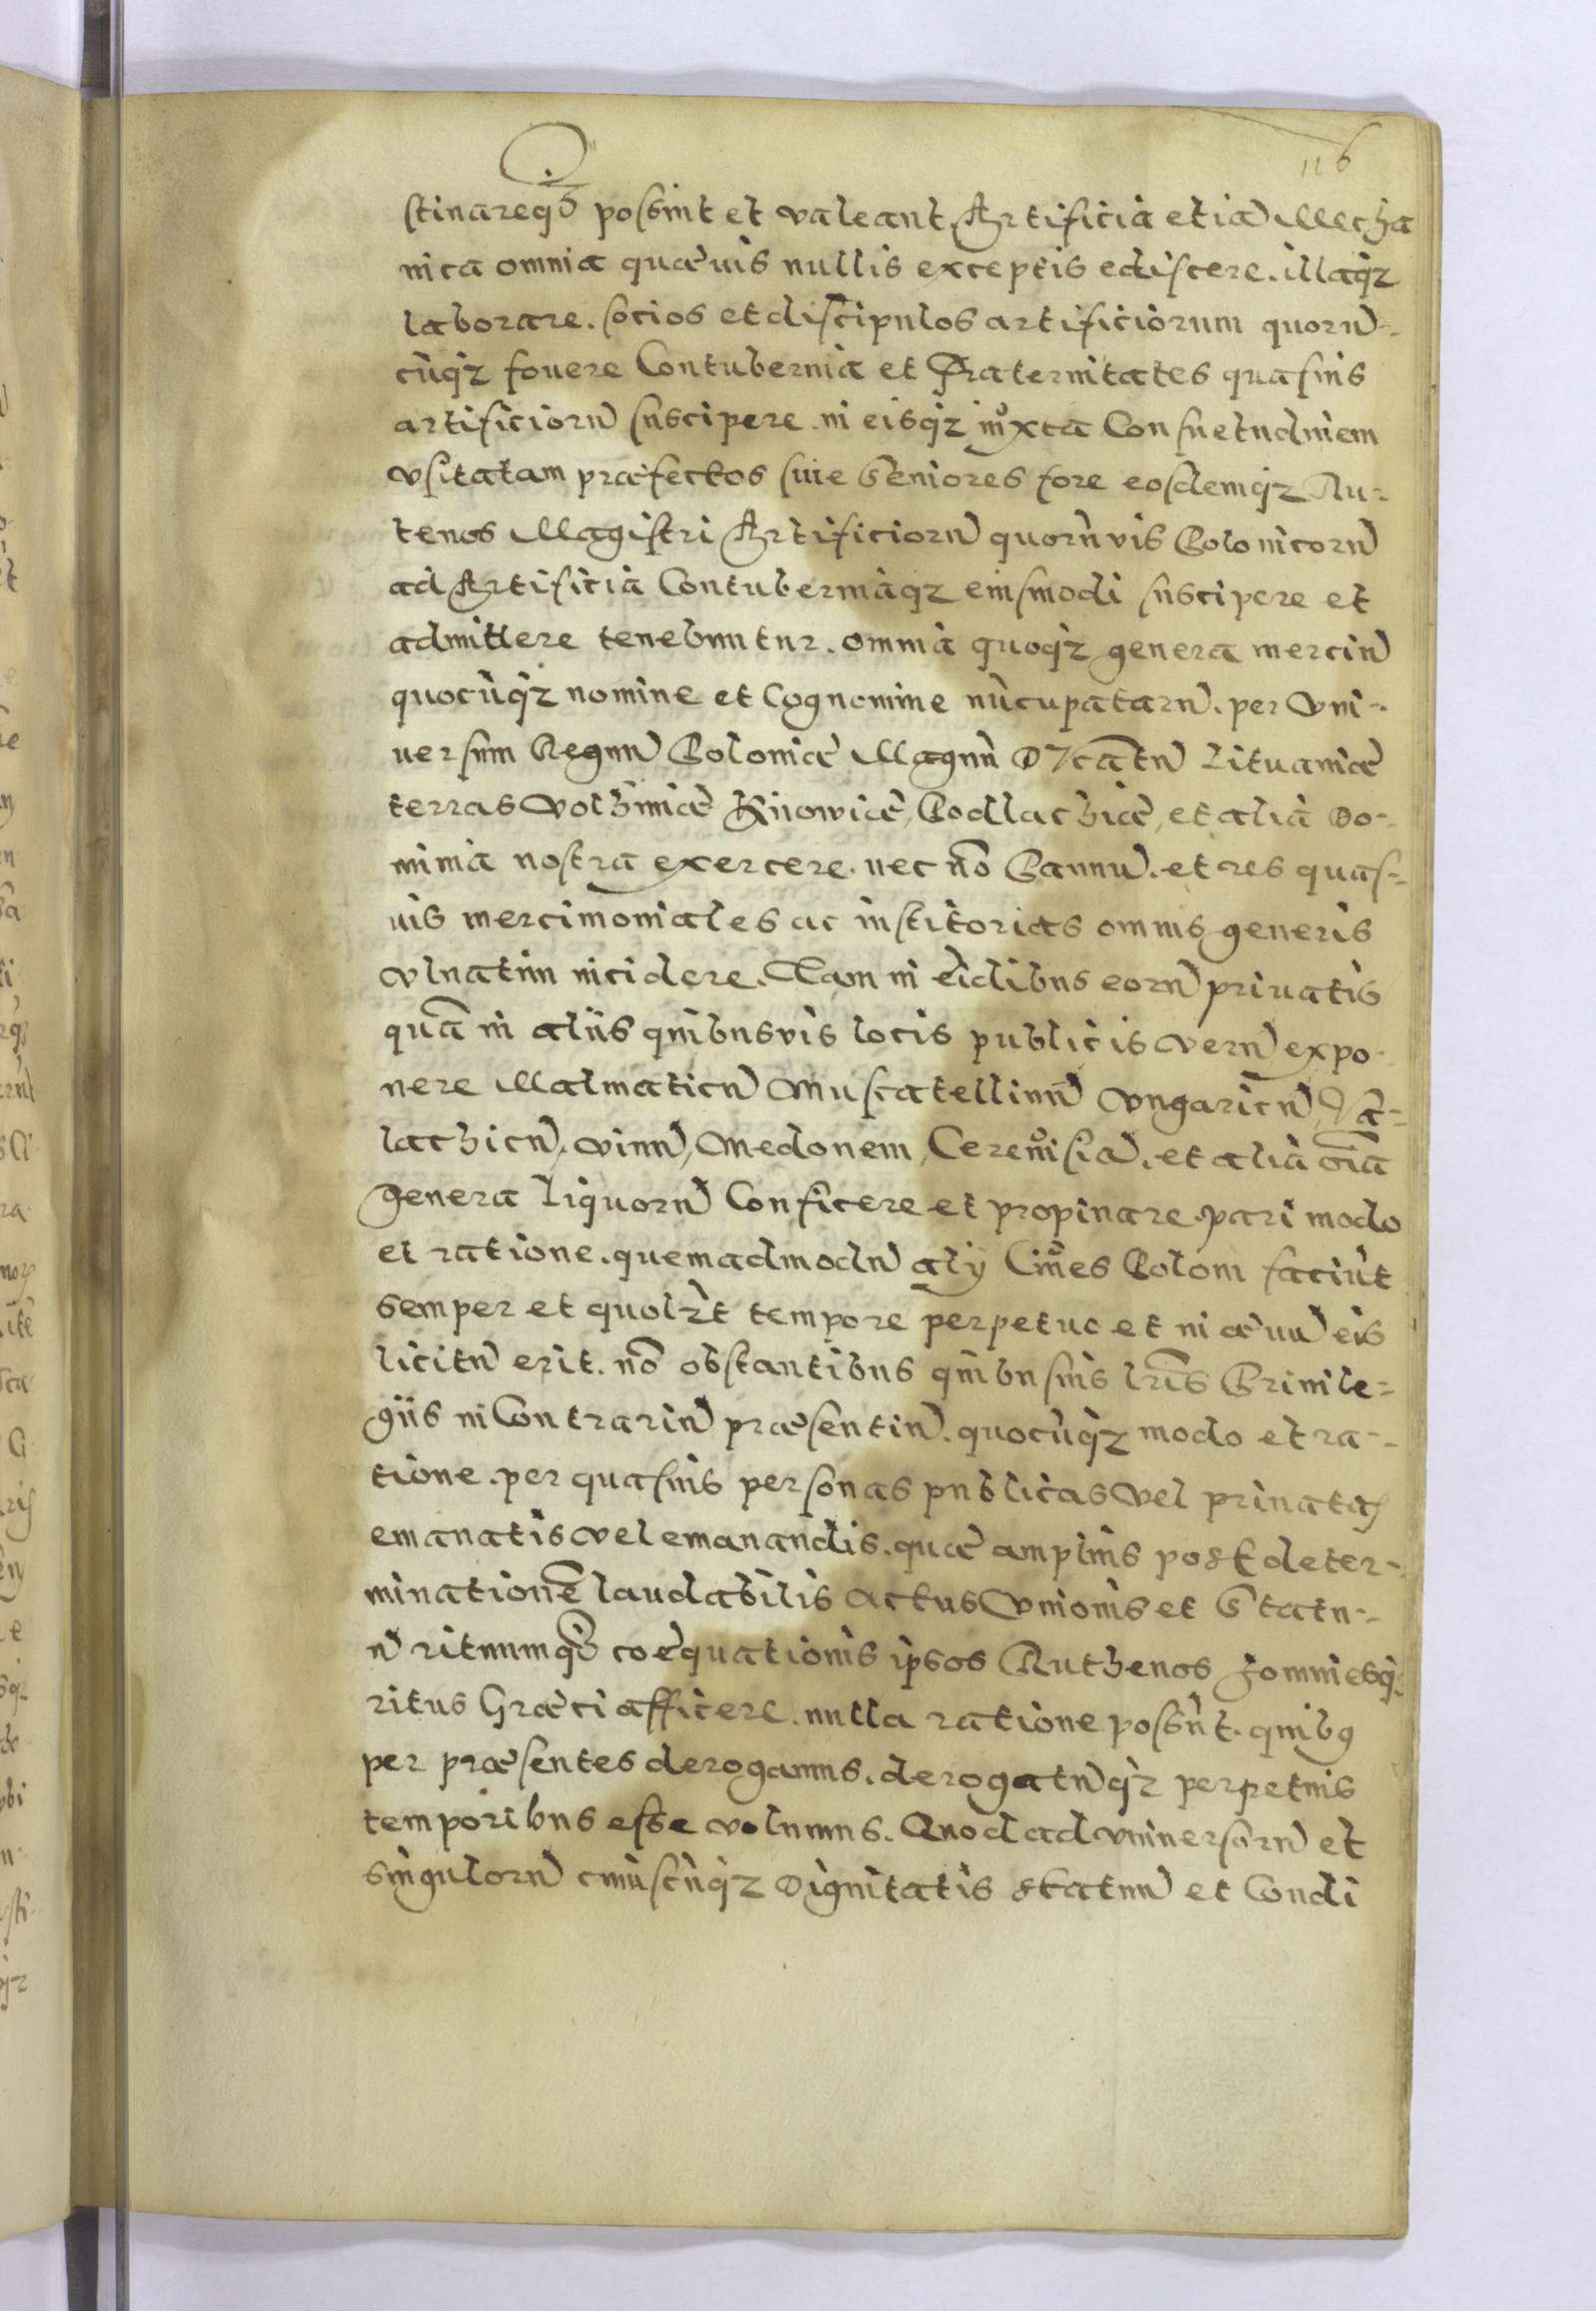 116
stinareqꝫ possint et valeant. Artificia etiā Mecha
nica omnia quævis nullis exceptis ediscere. illaqꝫ
laborare. socios et discipulos artificiorum quorū-
cūqꝫ fovere Contubernia et Fraternitates quasuis
artificiorū suscipere. in eisqꝫ iuxta Consuetudinem
vsitatam præfectos siue Seniores fore eosdemqꝫ Ru-
tenos Magistri Artificiorū quorūvis Polonicorū
ad Artificia Contuberniaqꝫ eiusmodi suscipere et
admittere tenebuntur. omnia quoqꝫ genera merciū
quocūqꝫ nomine et Cognomine nūcupatarū. per Vni-
uersum Regnū Poloniæ Magnū Ducātū Lituaniæ
terras Volhiniæ Kiiowiæ, Podlachiæ, et alia Do-
minia nostra exercere. nec nō Pannū. et res quas-
uis mercimoniales ac institorias omnis generis
vlnatim incidere. Tam in ędibus eorū priuatis
quā in aliis quibusvis locis publicis verū expo-
nere Malmaticū Muscatellinū Vngaricū Va-
lachicū, vinū, Medonem, Cereuisiā. et alia oīa
genera liquorū Conficere et propinare. pari modo
et ratione. quemadmodū alij Ciues Poloni faciūt
semper et quolꝫt tempore perpetuo et in æuū eis
licitū erit. nō obstantibus quibusuis lrīs Priuile-
giis in Contrariū præsentiū. quocūqꝫ modo et ra-
tione. per quasuis personas publicas vel priuatas
emanatis vel emanandis. quæ amplius post deter-
minationē laudabilis actus Vnionis et Statu-
ū rituumqꝫ coęquationis ipsos Ruthenos hominesqꝫ
ritus Græci afficere. nulla ratione possūt. quibꝯ
per præsentes derogamus. derogatūqꝫ perpetuis
temporibus esse volumus. Quod ad vniuersorū et
singulorū cuiuscūqꝫ Dignitatis statuū et Condi